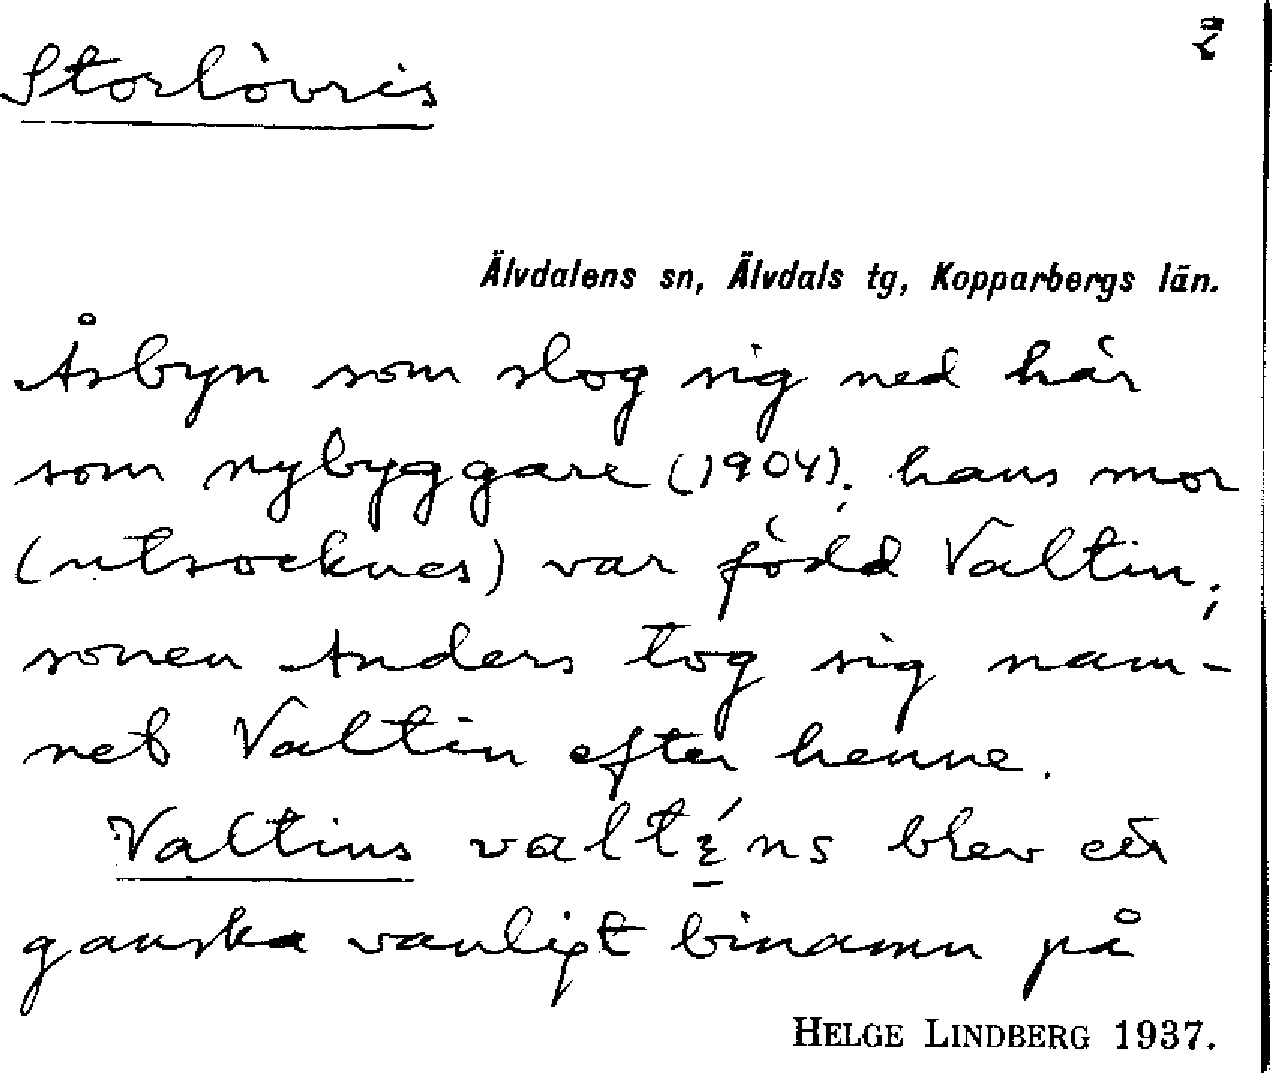 2
Storlövris
Älvdalens sn, Älvdals tg, Kopparbergs län.
Åsbyn som slog sig ned här
som nybyggare (1904); hans mor
(utsocknes) var född Valtin;
sonen Anders tog sig nam-
net Valtin efter henne.
Valtins valtɛ́ns blev ett
ganska vanligt binamn på
HELGE LINDBERG 1937.